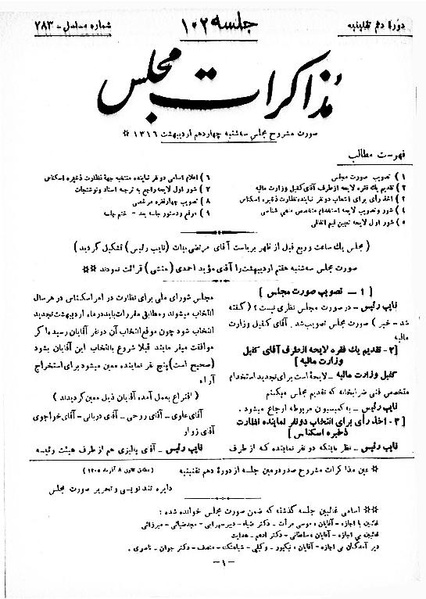 دورهٔ دهم تقنینیه
جلسه ۱۰۲
شماره مسلسل ۲۸۳
مذاکرات مجلس
صورت مشروح مجلس سه‌شنبه چهاردهم اردیبهشت ۱۳۱۶ ※
فهرست مطالب
۱) تصویب صورت مجلس
۲) تقدیم یک فقره لایحه از طرف آقای کفیل وزارت مالیه
۳) اخذ رأی برای انتخاب دو نفر نماینده نظارت ذخیره اسکناس
۴) شور و تصویب لایحه استخدام متخصص معدن شناسی
۵) شور اول لایحه تعیین قیم اتفاقی
۶) اعلام اسامی دو نفر نماینده منتخبه جهة نظارت ذخیره اسکناس
۷) شور اول لایحه راجع به ترجمه اسناد و نوشتجات
۸) تصویب چهار فقره مرخصی
۹) موقع و دستور جلسه بعد - ختم جلسه
(مجلس یک ساعت و ربع قبل از ظهر بریاست آقای مرتضی بیات (نایب رئیس) تشکیل گردید)
صورت مجلس سه‌شنبه هفتم اردیبهشت را آقای مؤید احمدی (منشی) قرائت نمودند ※※
[۱ - تصویب صورت مجلس]
نایب رئیس - در صورت مجلس نظری نیست؟ (گفته
شد - خیر) صورت مجلس تصویب شد. آقای کفیل وزارت
مالیه
[۲ - تقدیم یک فقره لایحه از طرف آقای کفیل
وزارت مالیه]
کفیل وزارت مالیه - لایحه‌ایست برای تجدید استخدام
متخصص فنی ضرابخانه که تقدیم مجلس میکنم
نایب رئیس - به کمیسیون مربوطه ارجاع میشود.
[۳ - اخذ رأی برای انتخاب دو نفر نماینده نظارت
ذخیره اسکناس]
نایب رئیس - نظر باینکه دو نفر نماینده که از طرف
مجلس شورای ملی برای نظارت در امر اسکناس در هر سال
انتخاب میشوند و مطابق مقررات باید در ماه اردیبهشت تجدید
انتخاب شود چون موقع انتخاب آن دو نفر آقایان رسیده اگر
موافقت میفرمایند قبلا شروع بانتخاب این آقایان بشود
(صحیح است) پنج نفر نماینده معین میشود برای استخراج
آراء
(اقتراع بعمل آمده آقایان ذیل معین گردیدند)
آقای علوی - آقای روحی - آقای دربانی - آقای خواجوی
آقای زوار
نایب رئیس - آقای پالیزی هم از طرف هیئت رئیسه
※ عین مذاکرات مشروح صد و دومین جلسه از دورهٔ دهم تقنینیه
(مطابق قانون ۸ آذر ماه ۱۳۰۵)
دایره تند نویسی و تحریر صورت مجلس
※※ اسامی غائبین جلسه گذشته که ضمن صورت مجلس خوانده شده:
غائبین با اجازه - آقایان:
غائبین بی اجازه - آقایان:
دیر آمدگان بی اجازه - آقایان:
-۱-